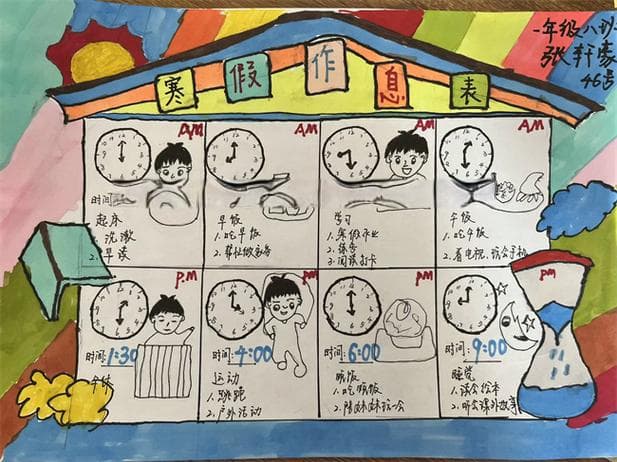 一年级八
张轩豪
46号
寒假作息表
AM
时间
起床
洗漱
2.早读
AM
早饭
1.吃早饭
AM
学习
1.寒假作业
2.练字
3.阅读打卡
AM
午饭
1.吃午饭
2.看电视、玩会手机
P.M
时间:1:30
午休
PM
时间:4:00
运动
1.跳跑
2.户外活动
PM
时间:6:00
晚饭
1.吃晚饭
2.陪妹妹玩一会
PM
时间:9:00
睡觉
1.读会绘本
2.听会课外故事